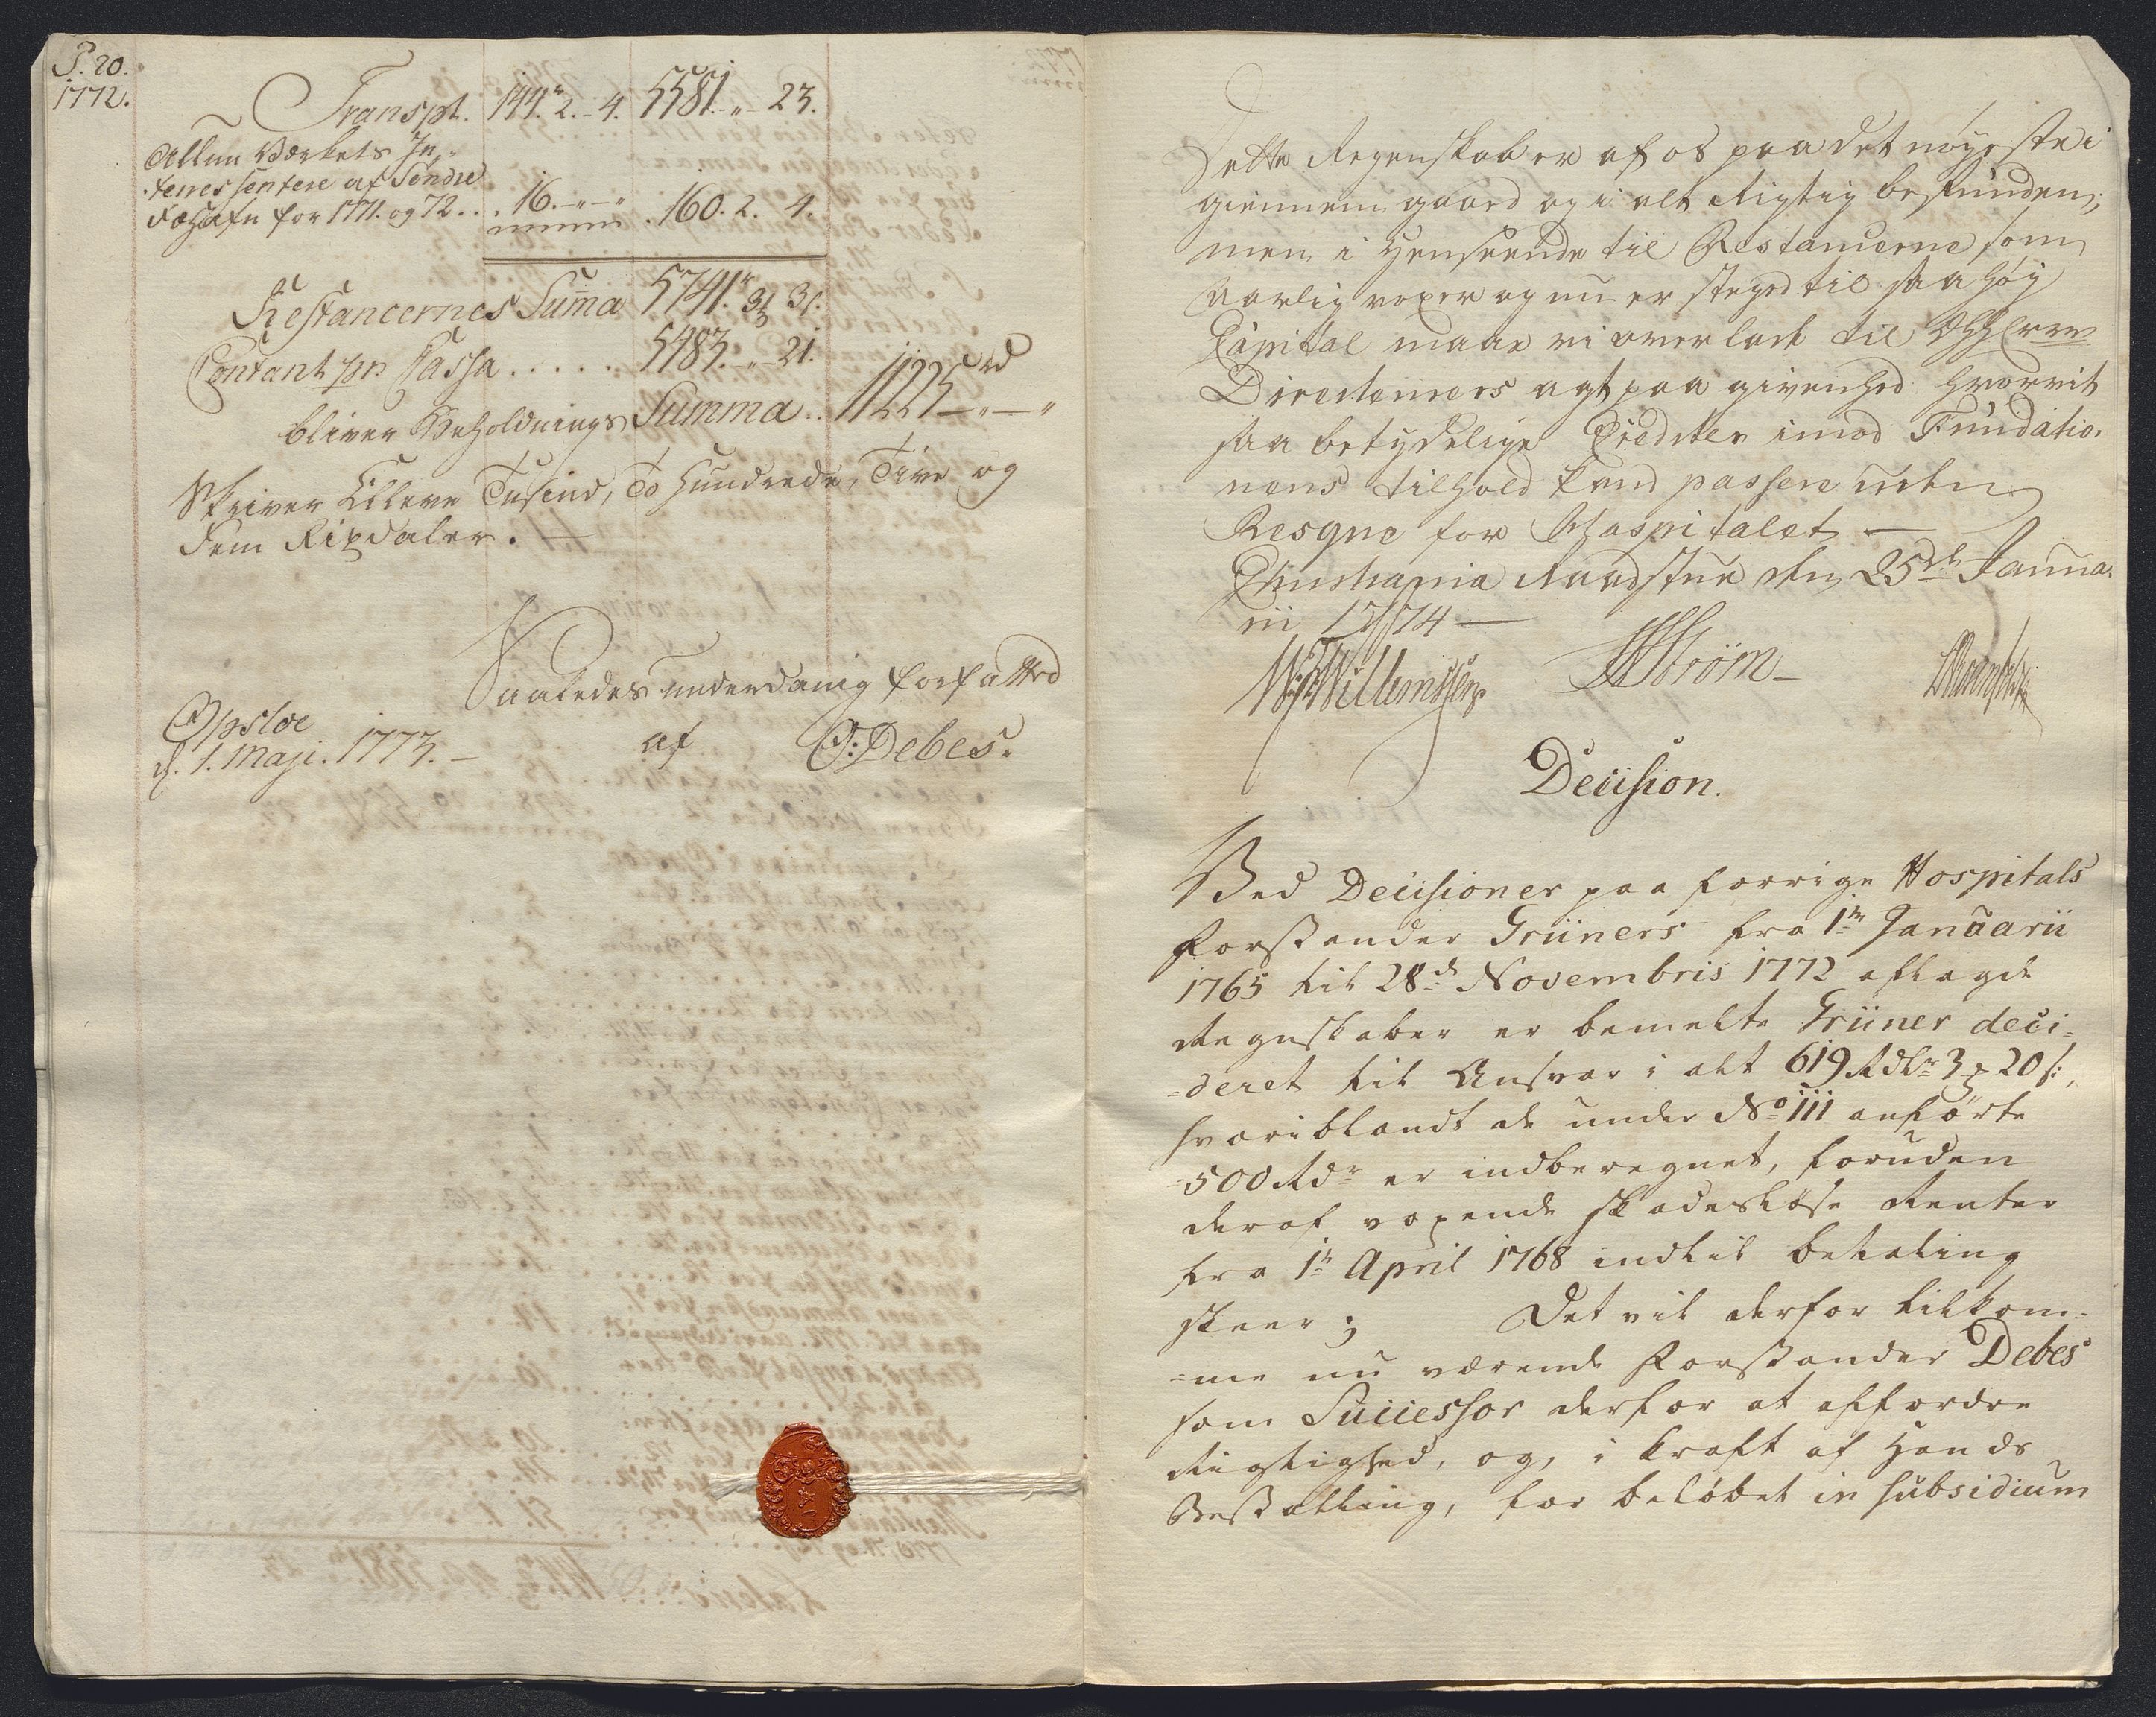 P. 20.
1772.
Transpt. 144. 2. 4. 5581. " 23.
Allun Værkets In-
teressentere af Søndre
Føhafn for 1771. og 72... 16. - " - " . 160. 2. 4.
Restancernes Suma 5741. 3 3.
Contant pr Cassa ..... 5483. " 21.
bliver Beholdnings Summa .. 11225 rd - " - "
Skriver Elleve Tusind, To Hundrede, Tive og
Fem Rixdaler. -
Saaledes underdanig forfatted
Opsloe
d. 1. Maji. 1773. - af C: Debes.
Dette Regenskab er af os paa det nøyeste i
giennem gaaed og i alt Rigtig befunden;
men i Henseende til Restancerne som
Aarlig voxer og nu er steged til saa høy
Capital maae vi overlade til
Directeurers agt paa givenhed hvorvit
saa betydelige Crediter imod Fundatio-
nens tilhold kand passere uden
Resque for Hospitalet -
Christiania Raadstue den 25de Janua-
rii 1774 -
Willemssen HStrøm -
Decision.
Ved Decisioner paa forrige Hospitals
Forstander Grüners fra 1ste Januarii
1765 til 28de Novembris 1772 aflagde
Regnskaber er bemelte Grüner deci-
-deret til Ansvar i alt 619 Rdlr 3 20 s:,
hvoriblandt de under No III anførte
500 Rdr er indberegnet, foruden
deraf voxende skadesløse Renter
fra 1te April 1768 indtil betaling
skeer; Det vil derfor tilkom-
-me nu værende Forstander Debes
som Successor derfor at affordre
Rigtighed, og, i kraft af Hands
Bestalling, for beløbet in subsidium